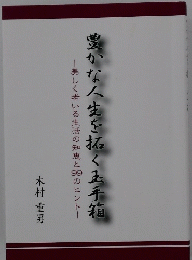 豊かな人生を拓く玉手箱
―美しく老いる生活の知恵と99のヒント―
木村